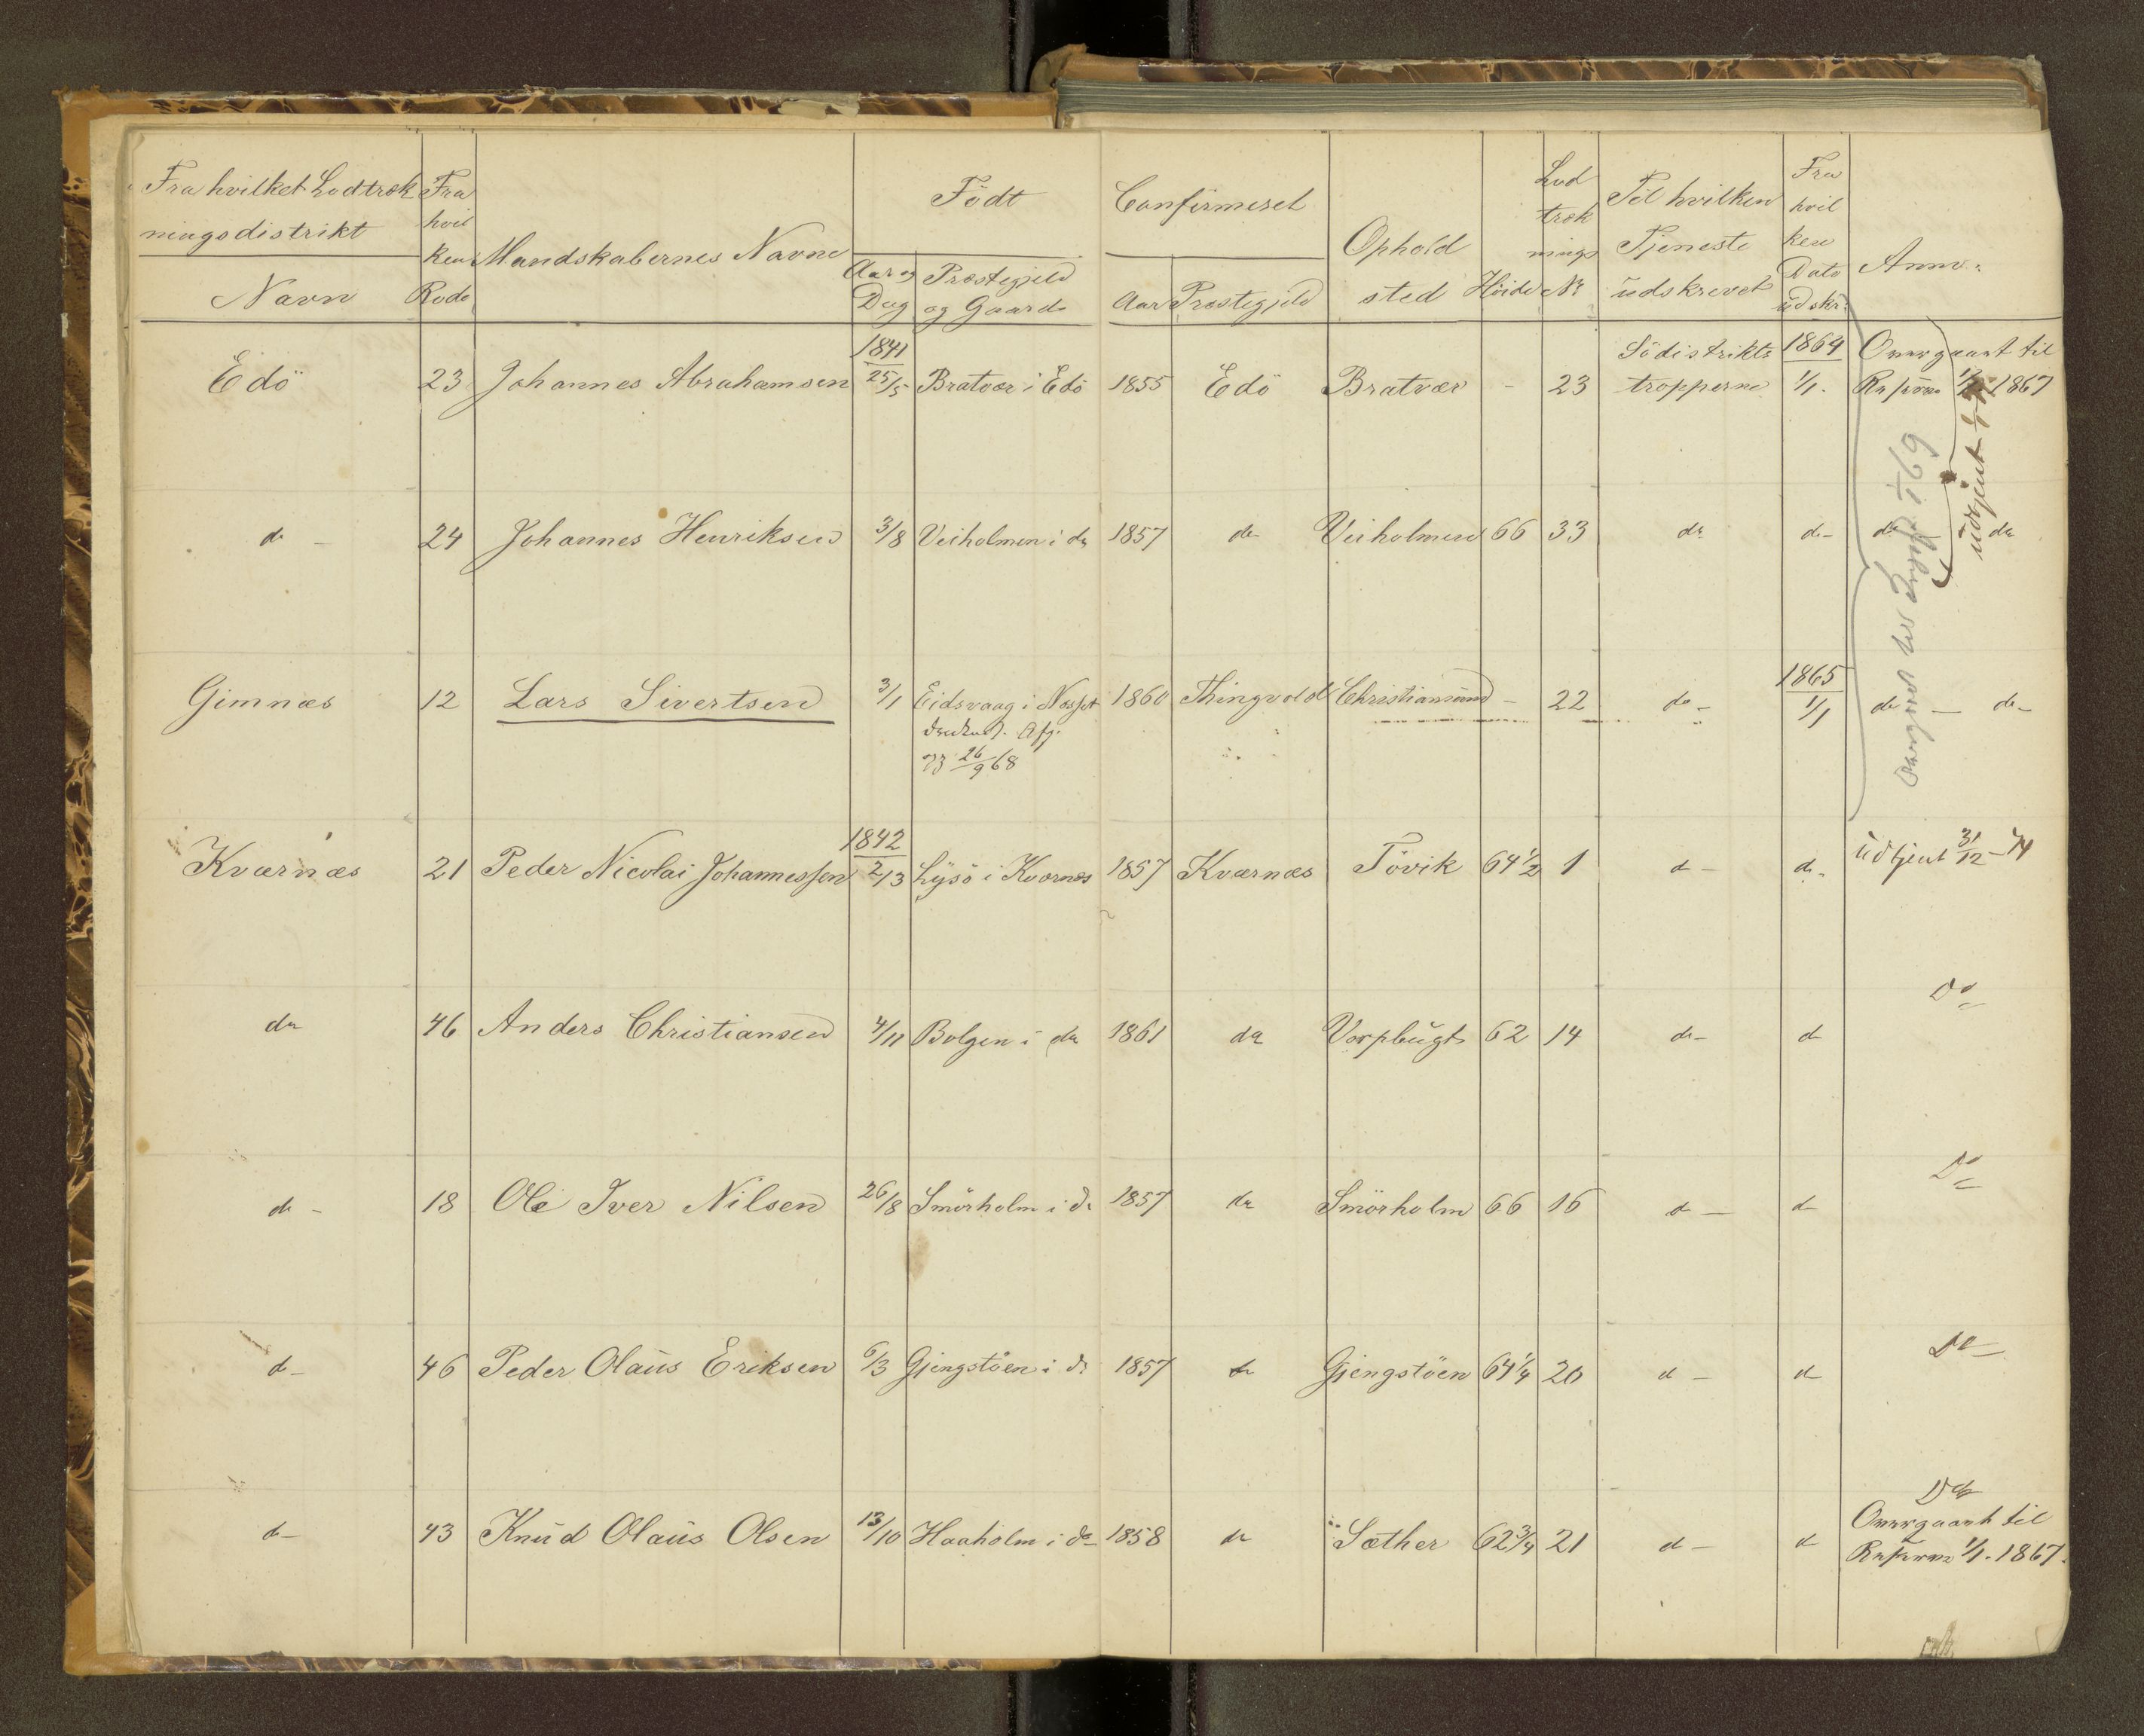 Fra hvilket Lodtræk
ningsdistrikt
Navn
Fra
hvil
ken
Rode
Mandskabernes Navne
Födt
Aar og
Dag
Præstegjeld
og Gaard
Confirmeret
Aar
Præstegjeld
Ophold
sted
Höide
Lod
træk
nings
No
Til hvilken
Tjeneste
udskrevet
Fra
hvil
ken
Dato
udskr:
Anm:
1841
Edö 23 Johannes Abrahamsen 25/5 Bratvær i Edö 1855 Edö Bratvær - 23 Södistrikts
tropperne 1864
1/1. Overgaaet til
1/1 1867
udtjent
do - 24 Johannes Henriksen 3/8 Veiholmen i do 1857 do Veiholmen 66 33 do do do do
Gimnæs 12 Lars Sivertsen 3/1 Eidsvaag i Næsset 1860 Thingvold Christiansund - 22 do - 1865
1/1 do - do -
Afg.
26/9 68
1842
Kværnæs 21 Peder Nicolai Johannessen 2/3 Lysö i Kværnæs 1857 Kværnæs Tövik 64 1/2 1 do - do - udtjent 31/12 - 74
do 46 Anders Christiansen 4/11 Bolgen i do 1861 do 62 14 do - do Do
do - 18 Ole Iver Nilsen 26/8 Smörholm i do 1857 do Smörholm 66 16 do - do Do
do - 46 Peder Olaus Eriksen 6/3 Gjengstöen i do 1857 do Gjengstöen 64 1/4 20 do - do Do
do - 43 Knud Olaus Olsen 13/10 Haaholm i do 1858 do Sæther 62 3/4 21 do - do Do
Overgaaet til
1/1. 1867.